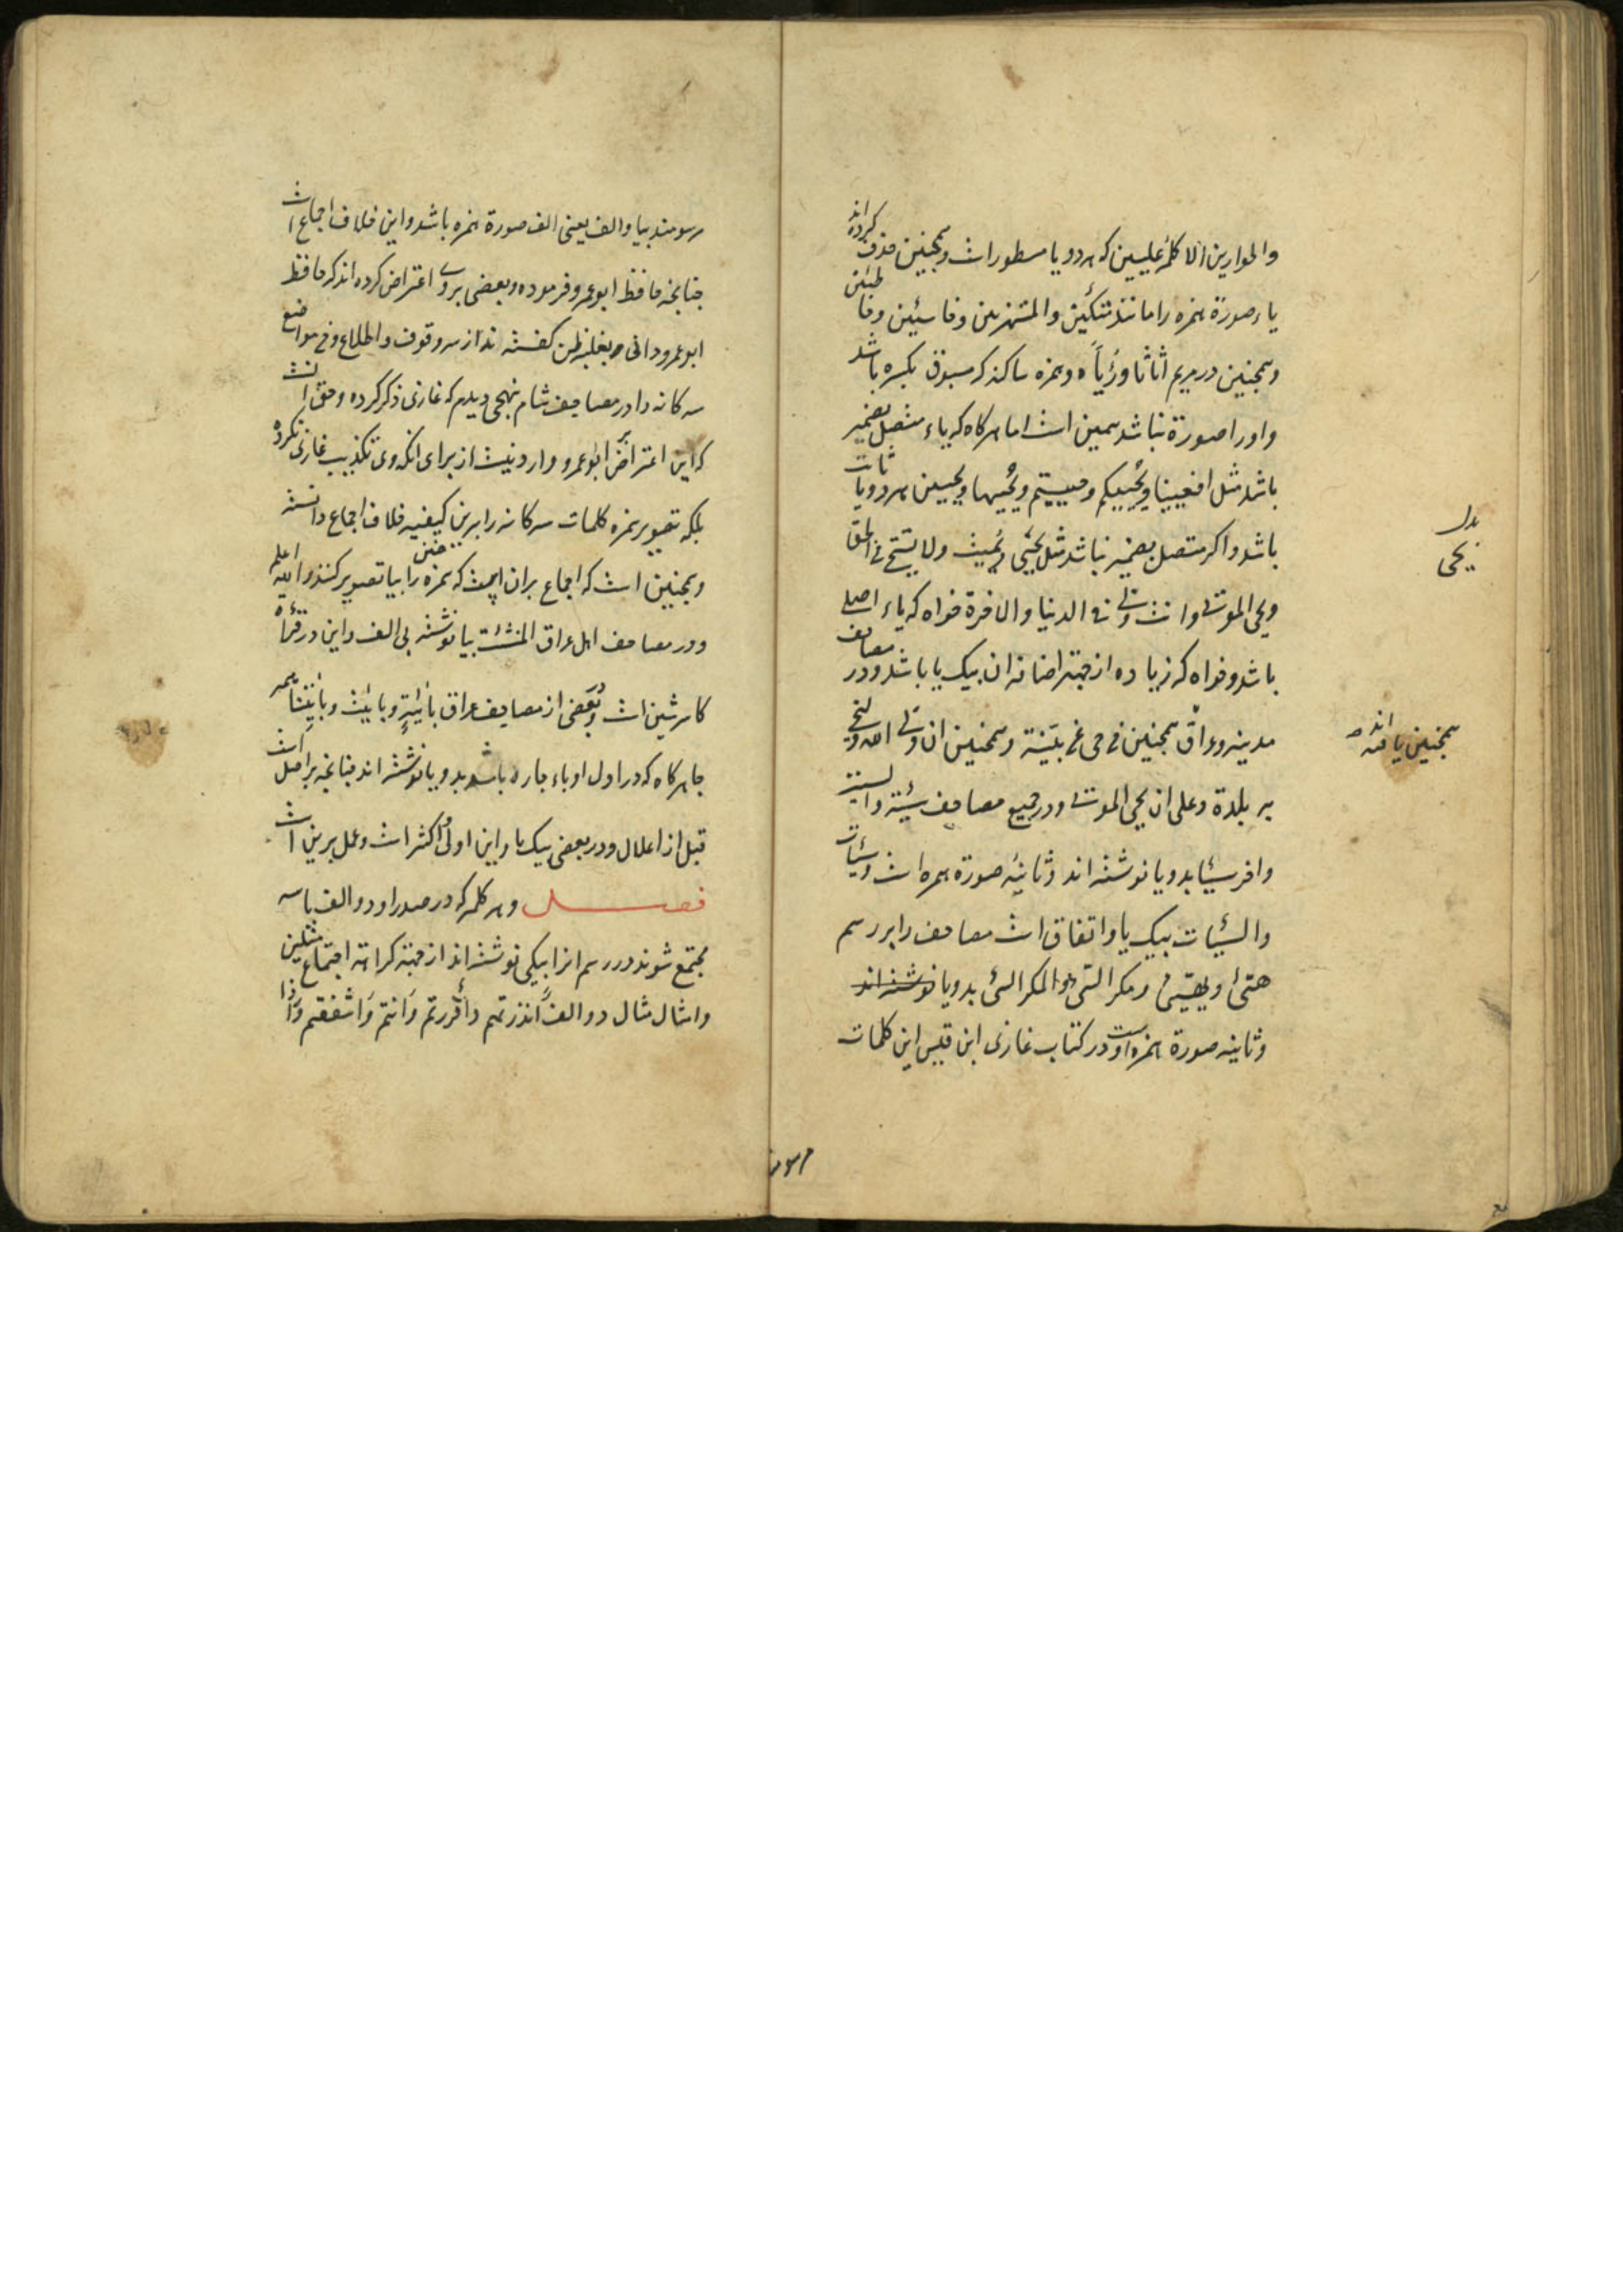 والحوارین الا کلمه علیین که هر دو یا مسطور است وهمچنین حذف کرده اند
یاء صورة همزه را مانند متکئین والمستهزئین وخاسئین وخاطئین
وهمچنین در مریم اثاثا ورئیا وهمزه ساکنه که مسبوق بکسره باشد
واورا صورة نباشد همین است اما هر کاه که یاء متصل بضمیر
باشد مثل افعیینا ویحییکم وحییتم ویحییها ویحیین هر دو یا ثابت
باشد واکر متصل بضمیر نباشد مثل یحیی ونمیت ولا یستحی من الحق
ویحی الموتی وانت ولی فی الدنیا والاخرة خواه که یاء اصلی
باشد وخواه که زیاده از جهة اضافه ان بیک یا باشد ودر مصاحف
مدینه وعراق همچنین من حی عن بینة وهمچنین ان ولی الله ولنحی
به بلدة وعلی ان یحی الموتی ودر جمیع مصاحف سیئة والسیئة
واخر سیئا بدو یا نوشته اند وثانیه صورة همزه است وسیئات
والسیئات بیک یا واتفاق است مصاحف را بر رسم
هیئ ویهیئ ومکر السیئ والمکر السیئ بدو یا نوشته اند
وثانیه صورة همزه اوست ودر کتاب غازی ابن قیس این کلمات
بدل
یحی
همچنین یافته اند
رسومند
رسومند بیا والف یعنی الف صورة همزه باشد واین خلاف اجماع است
چنانچه حافظ ابو عمرو فرموده وبعضی بروی اعتراض کرده اند که حافظ
ابو عمرو دانی بغلبه ظن کفته نه از سر وقوف واطلاع ومن مواضع
سه کانه را در مصاحف شام بنهجی دیدم که غازی ذکر کرده وحق انست
که این اعتراض بر ابو عمرو وارد نیست از برای انکه وی تکذیب غازی نکرده
بلکه تصویر همزه کلمات سه کانه را برین کیفیه خلاف اجماع دانسته
وهمچنین است که اجماع بران است که همزه را بیا تصویر کنند والله اعلم
ودر مصاحف اهل عراق المنشئت بیا نوشته بی الف واین در قراءة
کاسر شین است وبعضی از مصاحف عراق بائیة وبائیت وبائیتنا همه
جا هر کاه که در اول او باء جاره باشد بدو یا نوشته اند چنانچه بر اصل است
قبل از اعلال ودر بعضی بیک یا واین اولی واکثر است وعمل برین است
فصل وهر کلمه که در صدر او دو الف یا سه
مجتمع شوند در رسم انرا بیکی نوشته اند از جهة کراهة اجتماع مثلین
وامثال مثال دو الف ءانذرتهم واقررتم وانتم واشفقتم واذا